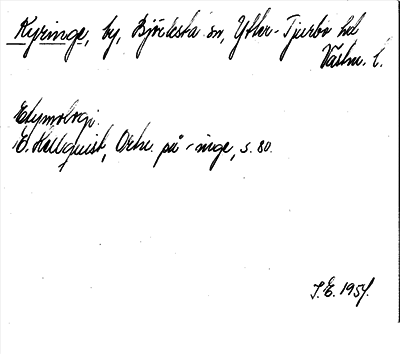 Kyringe, by, Björksta sn, Ytter-Tjurbo hd
Västm. l.
Etymologi.
E. Hellquist, Ortn. på -inge, s. 80.
J.E. 1954.